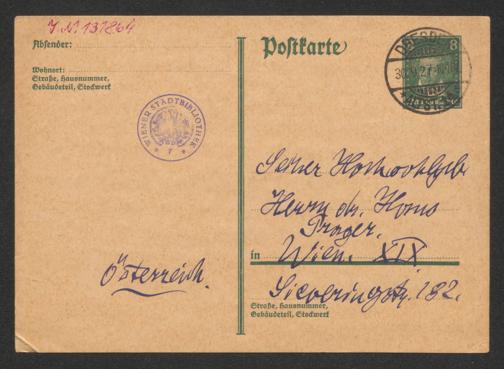 J.N. 137864
Absender:
Wohnort:
Straße, Hausnummer,
Gebäudeteil, Stockwerk
Postkarte
8
DRESDEN
WIENER STADTBIBLIOTHEK
Seiner Hochwohlgeb
Herrn Dr. Hans
Prager.
in Wien. XIX
Österreich.
Sieveringstr. 182.
Straße, Hausnummer,
Gebäudeteil, Stockwerk